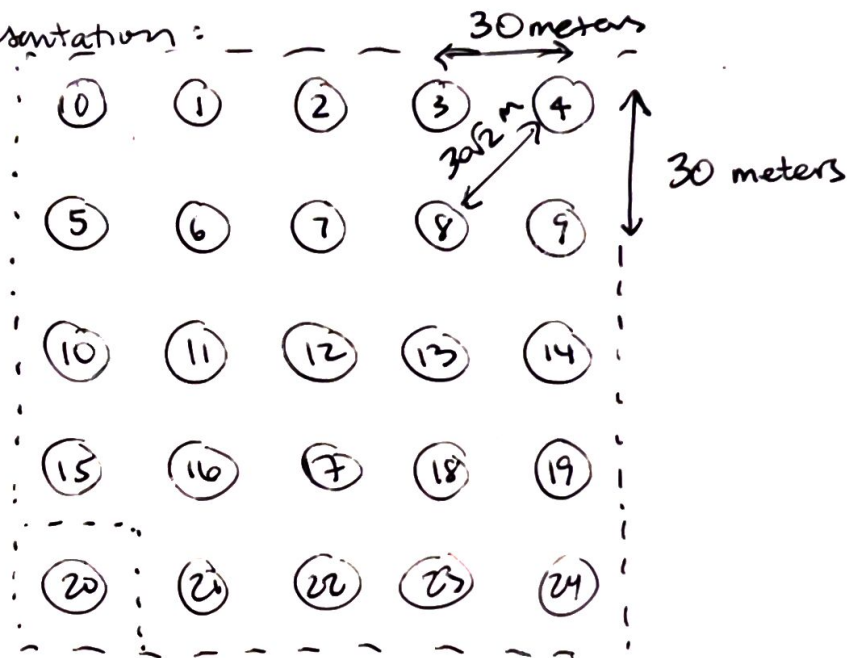 sentation:
30 meters
0 1 2 3 4
30√2 m
30 meters
5 6 7 8 9
10 11 12 13 14
15 16 7 18 19
20 21 22 23 24